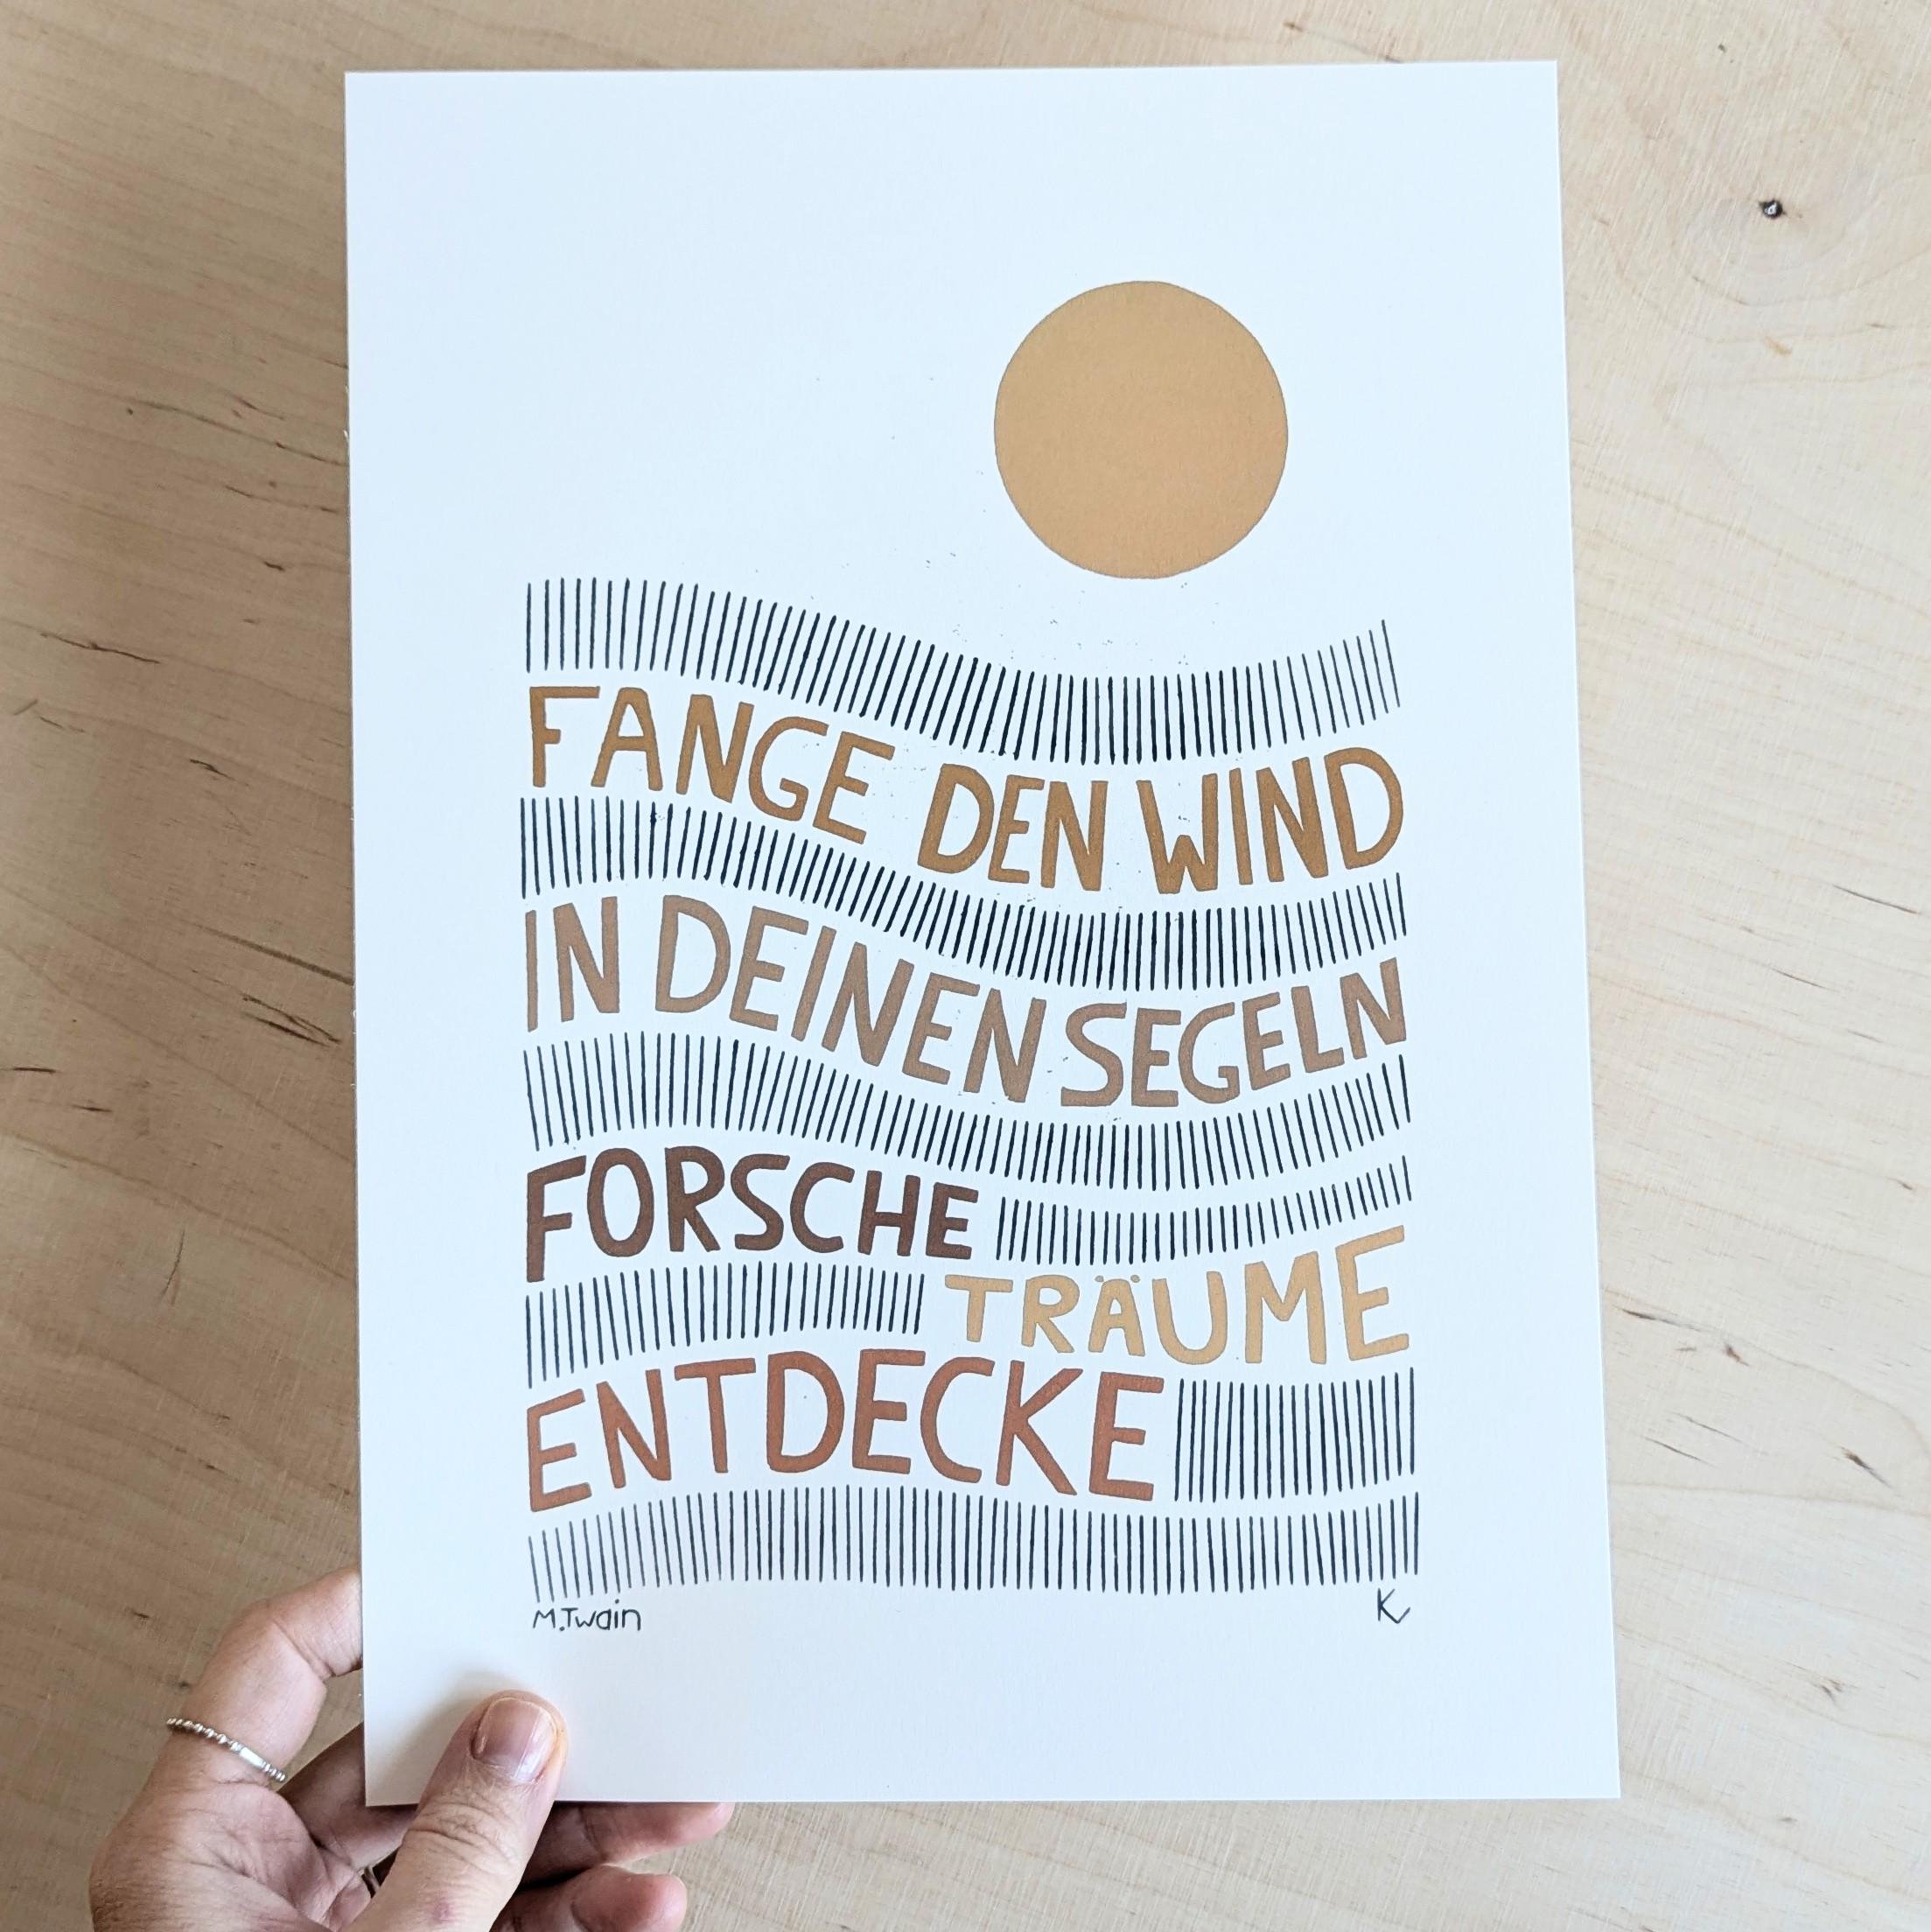 FANGE DEN WIND
IN DEINEN SEGELN
FORSCHE
TRÄUME
ENTDECKE
M.Twain
K